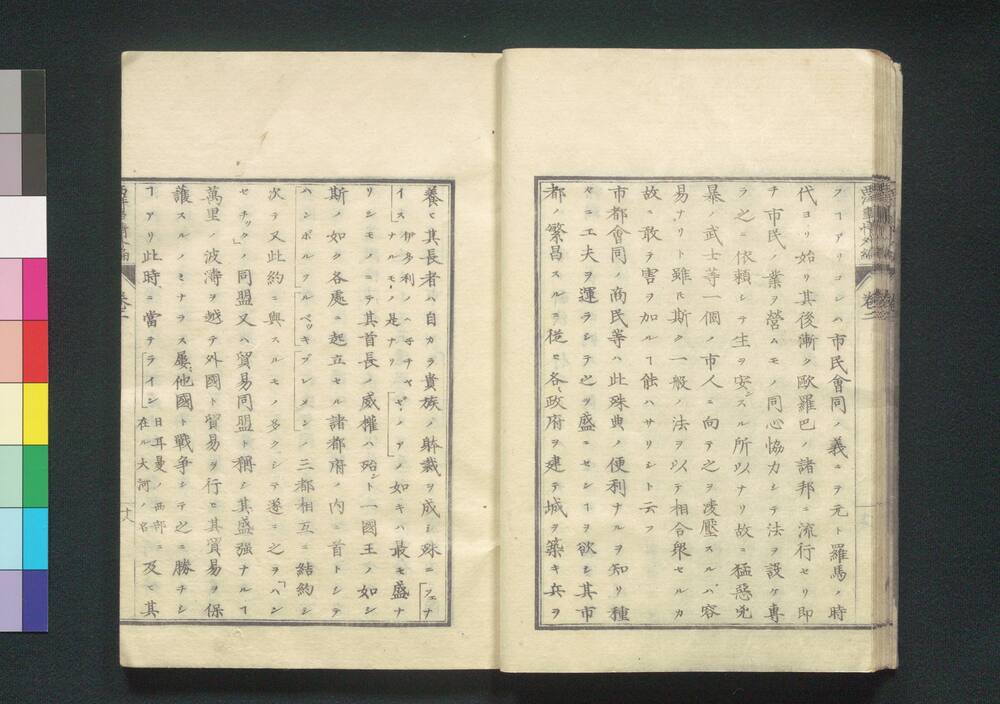 フヿアリコレハ市民會同ノ義ニヲ元ト羅馬ノ時
代ヨリ始リ其後漸ク歐羅巴ノ諸邦ニ流行セリ即
チ市民ノ業ヲ營ムモノ同心協力シテ法ヲ設ケ專
ラ之ニ依頼シテ生ヲ安ンスル所以ナリ故ニ猛惡兇
暴ノ武士等一個ノ市人ニ向テ之ヲ凌壓スルハ容
易ナリト雖𪜈斯ク一般ノ法ヲ以テ相合衆セルカ
故ニ敢テ害ヲ加ルヿ能ハサリシト云フ
市都會同ノ商民等ハ此殊典ノ便利ナルヲ知リ種
々ニ工夫ヲ運ラシテ之ヲ盛ニセンヿヲ欲シ其市
都ノ繁昌スルニ從ヒ各政府ヲ建テ城ヲ築キ兵ヲ
卷二
養ヒ其長者ハ自カラ貴族ノ躰裁ヲ成シ殊ニ「フェナ
イス」伊多利ノヘ子チヤナルモノ是ナリ「ゼノア」ノ如キハ最モ盛ナ
リシモノニテ其首長ノ威權ハ殆ント一國王ノ如シ
斯ノ如ク各處ニ起立セル諸都府ノ内ニ首トシテ
「ハンボルフ」「ルベッキ」「ブレメン」ノ三都相互ニ結約シ
次テ又此約ニ與スルモノ多クシテ遂ニ之ヲ「ハン
セチック」ノ同盟又ハ貿易同盟ト稱シ其盛強ナルヿ
萬里ノ波濤ヲ越テ外國ト貿易ヲ行ヒ其貿易ヲ保
護スルノミナラス屡他國ト戰爭シテ之ニ勝チシ
ヿアリ此時ニ當テ「ライン」日耳曼ノ西部ニ在ル大河ノ名ニ及ヒ其
卷二